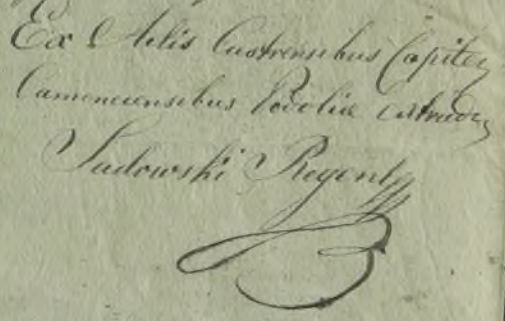 Ex Actis Castrensibus Capitan
Camenecensibus Podoliæ extradit
Sadowski Regent